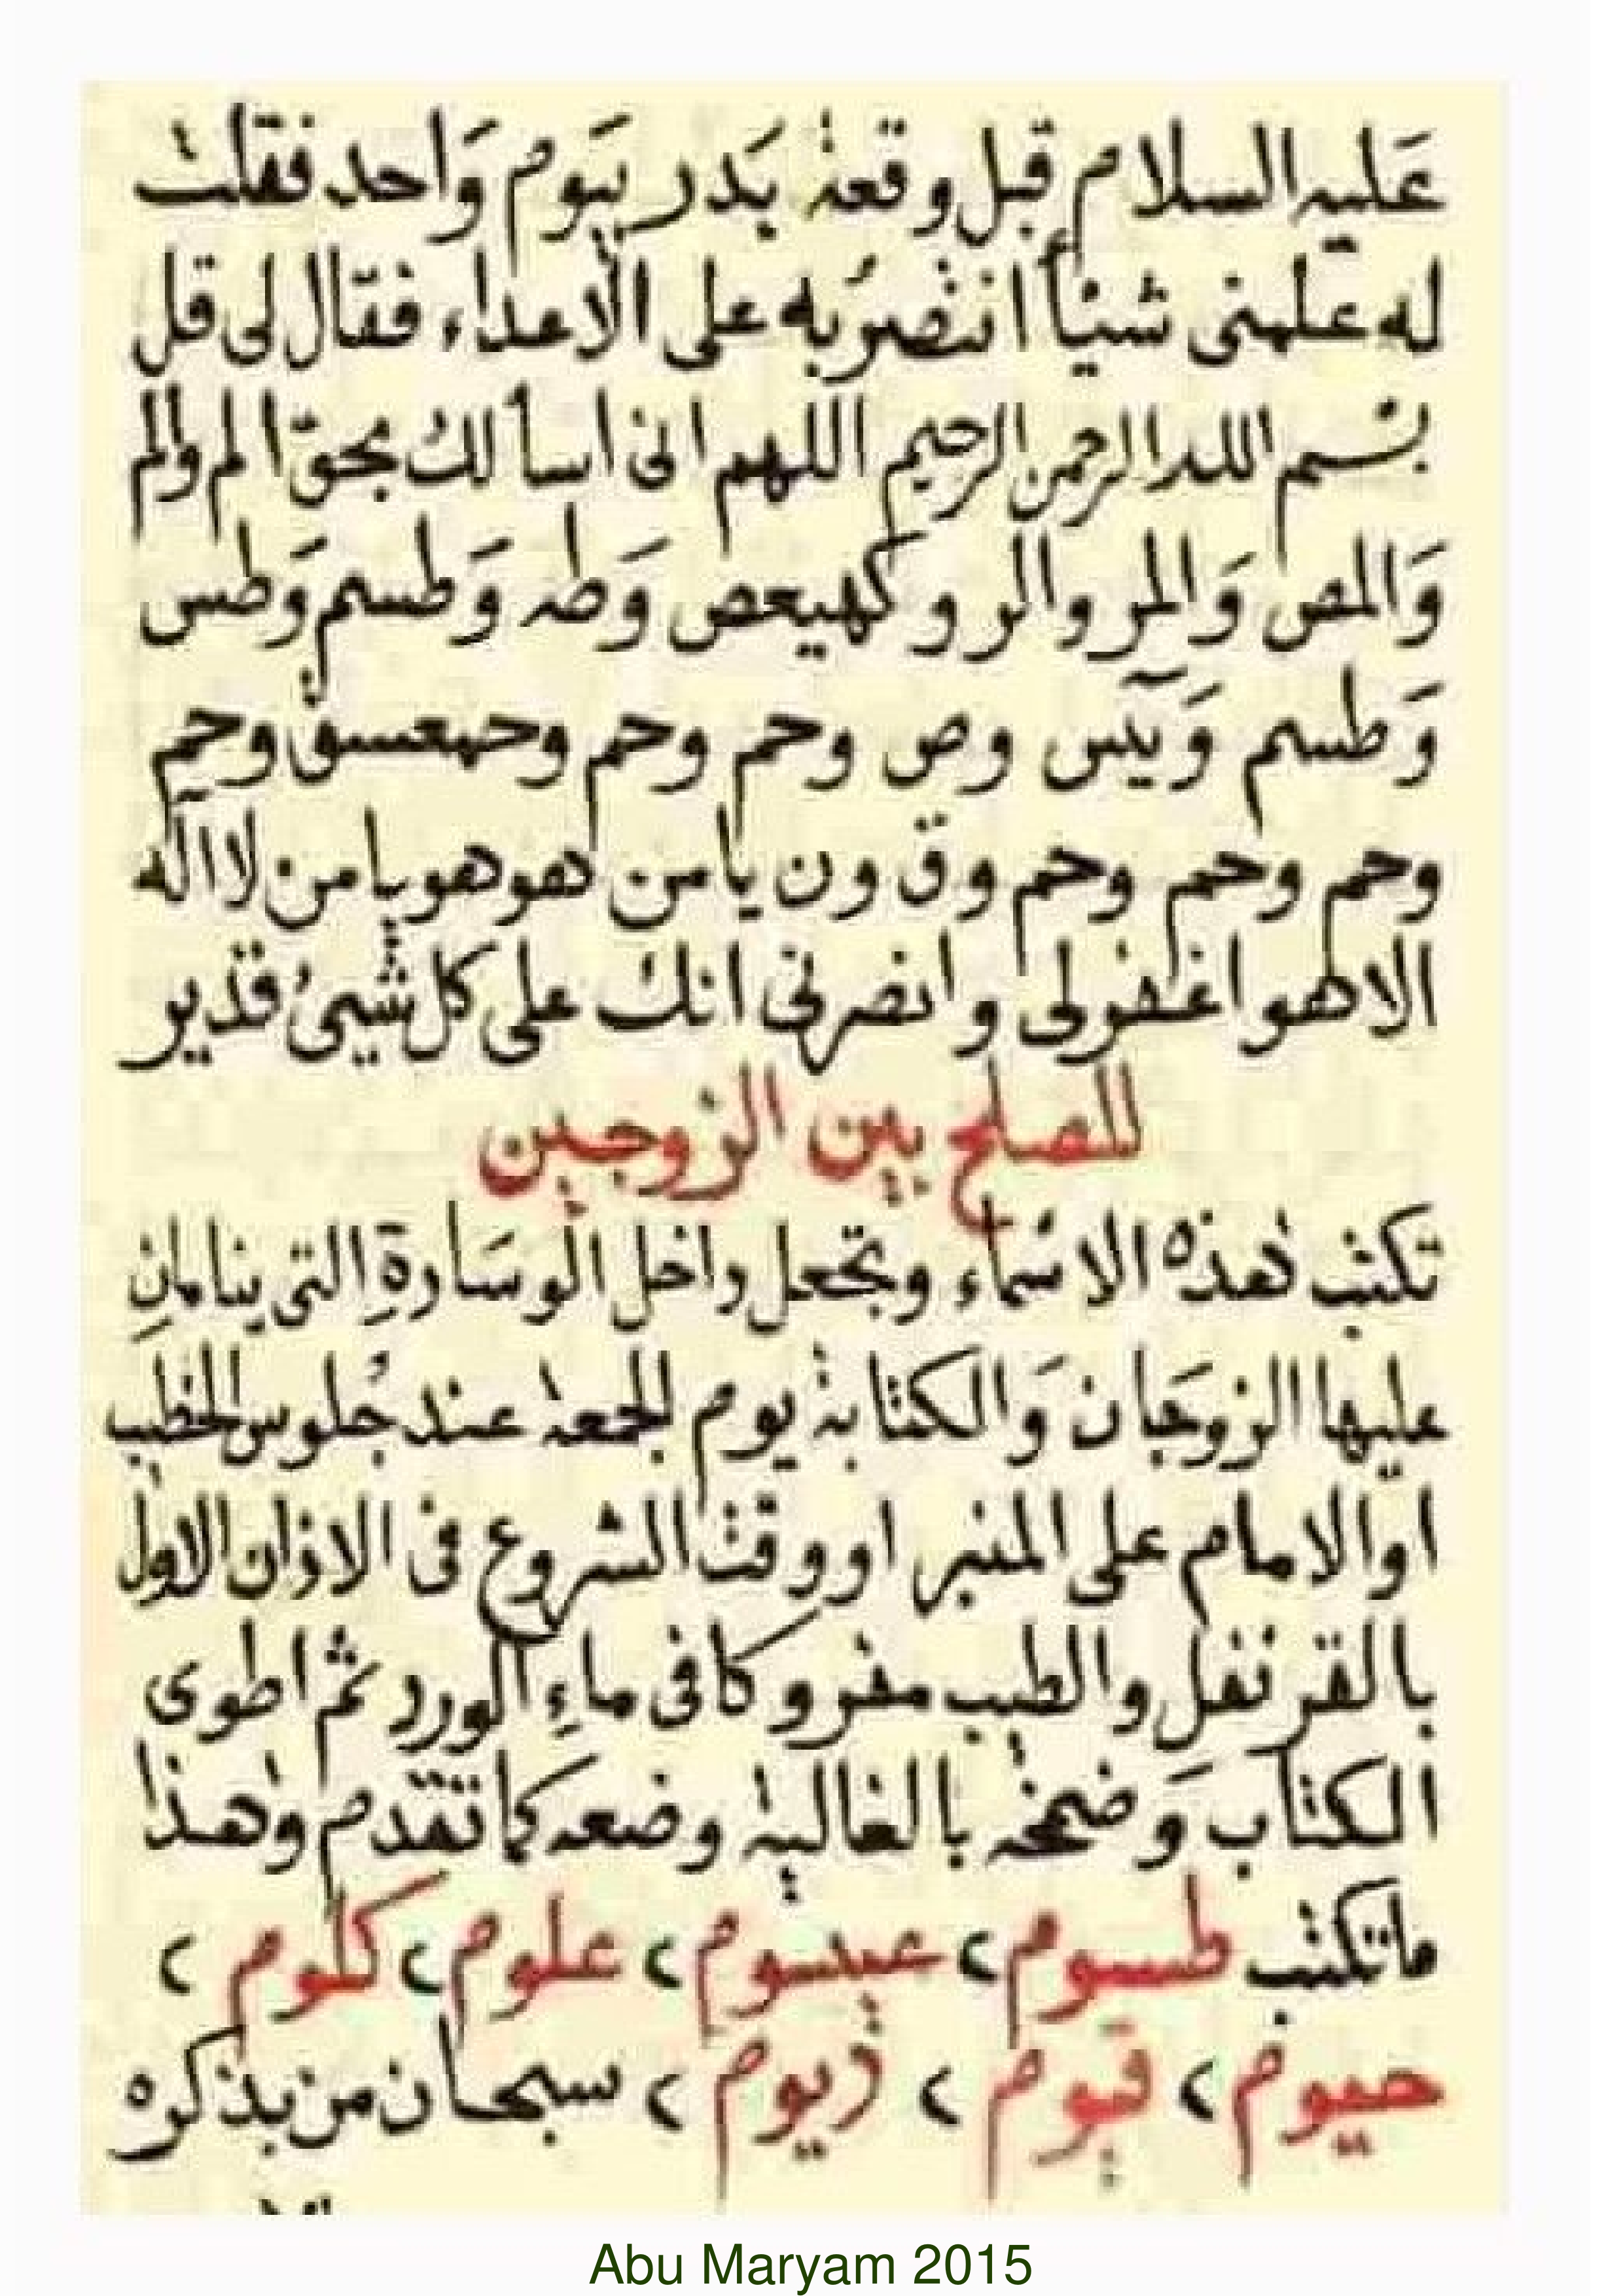 عَليه السلام قبل وقعة بَدر بيَوم وَاحد فقلت
له علمنى شيئأ انتصرُ به على الاعداء فقال لى قل
بسم الله الرحمن الرحيم اللهم انى اسألك بحق الم والم
وَالمص وَالمر والر وكهيعص وَطه وَطسم وَطس
وَطسم وَيس وص وحم وحم وحمعسق وحم
وحم وحم وحم وق ون يامن هو هو يامن لا اله
الا هو اغفرلى وانصرنى انك على كل شيئ قدير
للصلح بين الزوجين
تكتب هذه الاسماء وتجعل داخل الوسَادةِ التى ينامانِ
عليها الزوجَان وَالكتابة يوم الجمعة عند جُلوس الخطيب
اوالامام على المنبر او وقت الشروع فى الاذان الاول
بالقرنفل والطيب مفروكا فى ماءِ الورد ثم اطوى
الكتاب وَضمخه بالغالية وضعه كما تقدم وهذا
ماتكتب طسوم ٢ عيسوم ٢ علوم ٢ كلوم ٢
حيوم ٢ قيوم ٢ ديوم ٢ سبحان من بذكره
Abu Maryam 2015